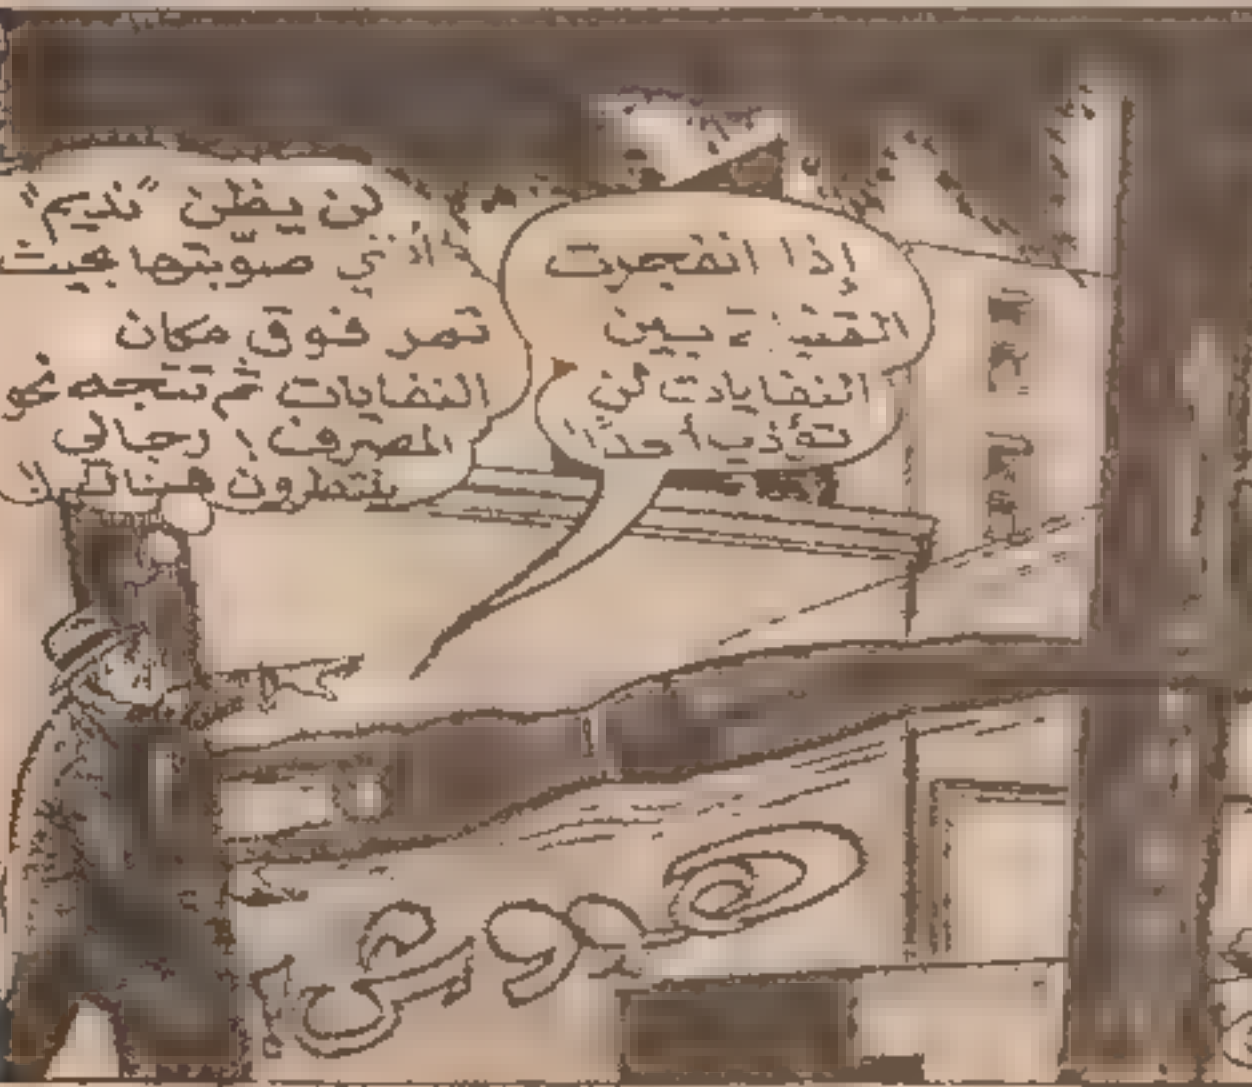 إذا انفجرت
القنبلة بين
النفايات لن
تؤذي أحدًا!
لن يظن "نديم"
أنني صوّبتها حيث
تمر فوق مكان
النفايات ثم تتجه نحو
المصرف! رجالي
ينتظرون هناك!!